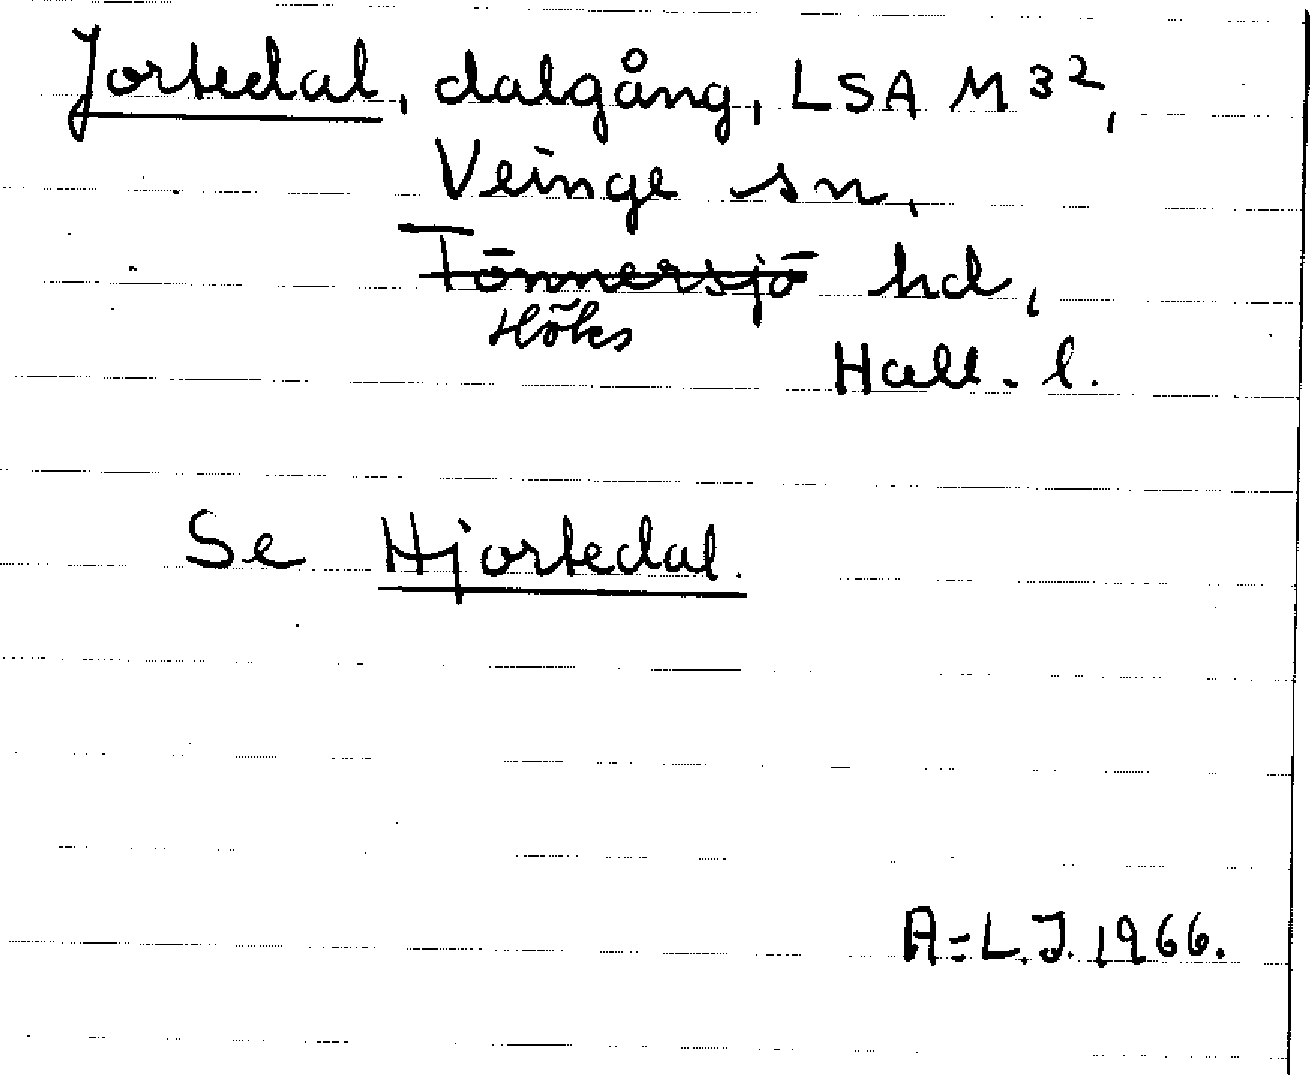 Jortedal, dalgång, LSA M 3²,
Veinge sn,
Tönnersjö hd,
Höks
Hall. l.
Se Hjortedal.
A-L.J. 1966.